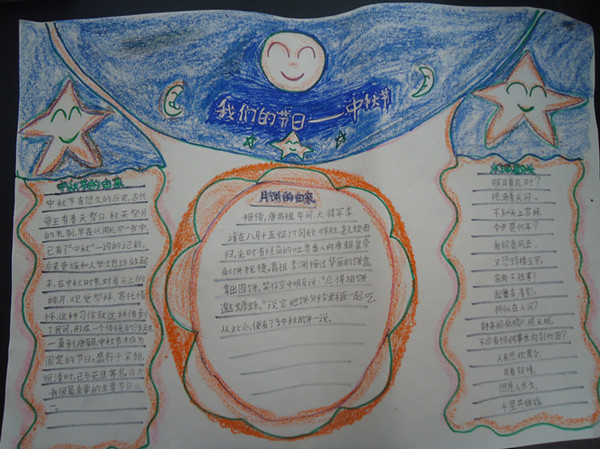 我们的节日——中秋节
中秋节的由来
中秋节有悠久的历史,古代
帝王有春天祭日,秋天祭月
的礼制,早在《周礼》一书中,
已有了"中秋"一词的记载,
后来贵族和文学士也仿效起
来,在中秋时节,对着天上的
皓月,观赏祭拜,寄托情
怀,这种习俗就这样传到
了民间,形成一个传统的活动
一直到唐朝,中秋节才成为
固定的节日,盛行于宋朝,
明清时,已与元旦齐名,成为
我国最重要的主要节日之
一。
月饼的由来
相传,唐高祖年间,大将军李
靖在八月十五征讨匈奴得胜,
归,当时有经商的吐鲁番人向唐朝皇帝
献饼祝捷,高祖李渊接过华丽的饼盒
拿出圆饼,笑指空中明月说:"应将胡饼
邀蟾蜍。"说完把饼分给群臣一起吃
从此后,便有了中秋月饼一说。
水调歌头
明月几时有?
把酒问青天。
不知天上宫阙,
今夕是何年?
我欲乘风归去,
又恐琼楼玉宇,
高处不胜寒!
起舞弄清影,
何似在人间?
转朱阁,低绮户,照无眠。
不应有恨,何事长向别时圆?
人有悲欢离合,
月有阴晴
但愿人长久,
千里共婵娟